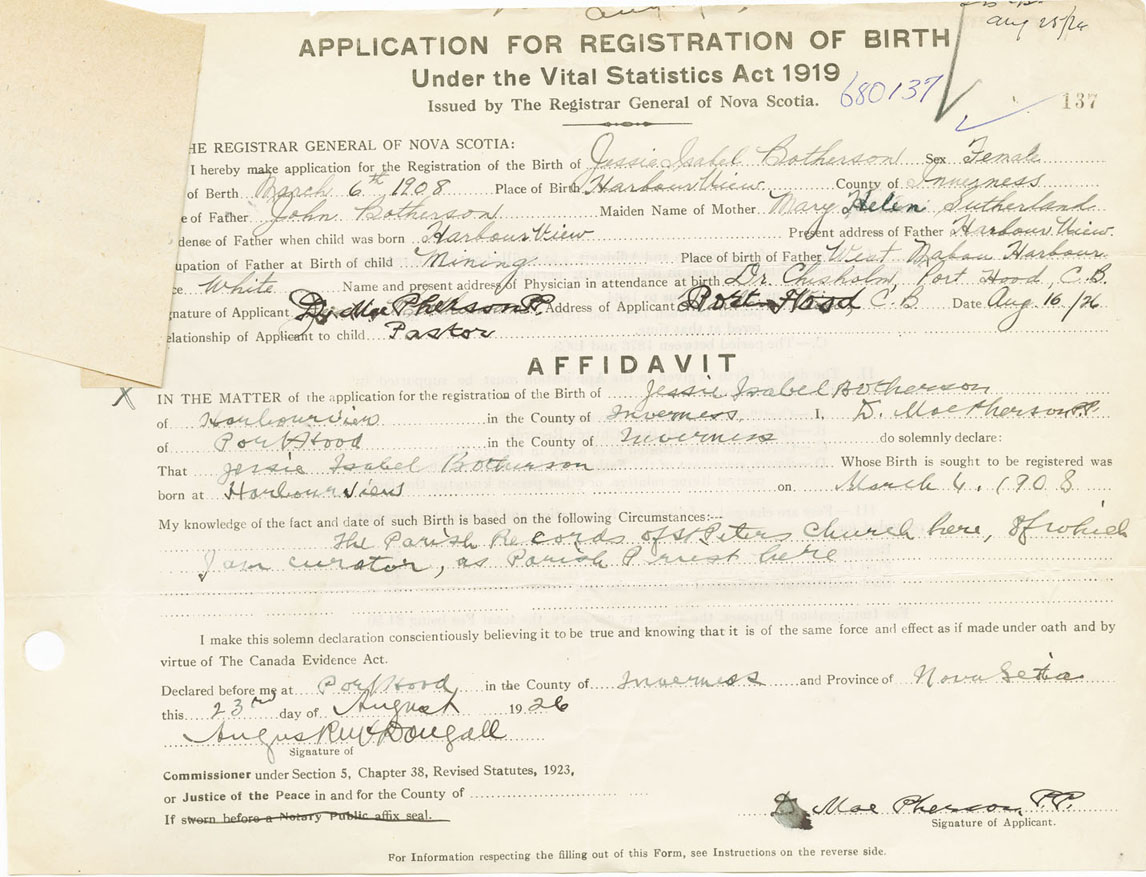 Aug 25/26
APPLICATION FOR REGISTRATION OF BIRTH
Under the Vital Statistics Act 1919
680137
Issued by The Registrar General of Nova Scotia.
137
HE REGISTRAR GENERAL OF NOVA SCOTIA:
I hereby make application for the Registration of the Birth of Jessie Isabel Botherson Sex Female
of Berth March 6th 1908 Place of Birth Harbour View County of Inverness
e of Father John Botherson Maiden Name of Mother Mary Helen Sutherland
dence of Father when child was born Harbour View Present address of Father Harbour View
upation of Father at Birth of child Mining Place of birth of Father West Mabou Harbour
ce White Name and present address of Physician in attendance at birth Dr. Chisholm, Port Hood, C.B.
gnature of Applicant D. MacPherson P.P. Address of Applicant Port Hood C.B Date Aug 16/26
elationship of Applicant to child Pastor
AFFIDAVIT
X IN THE MATTER of the application for the registration of the Birth of Jessie Isabel Botherson
of Harbourview in the County of Inverness, I, D. MacPherson P.P.
of Port Hood in the County of Inverness do solemnly declare:
That Jessie Isabel Botherson Whose Birth is sought to be registered was
born at Harbourview on March 6, 1908
My knowledge of the fact and date of such Birth is based on the following Circumstances:---
The Parish Records of St Peters Church here, of which
I am curator, as Parish Priest here
I make this solemn declaration conscientiously believing it to be true and knowing that it is of the same force and effect as if made under oath and by
virtue of The Canada Evidence Act.
Declared before me at Port Hood in the County of Inverness and Province of Nova Scotia
this 23rd day of August 1926
Angus R McDougall
Signature of
Commissioner under Section 5, Chapter 38, Revised Statutes, 1923,
or Justice of the Peace in and for the County of
If sworn before a Notary Public affix seal.
D. MacPherson, P.P.
Signature of Applicant.
For Information respecting the filling out of this Form, see Instructions on the reverse side.